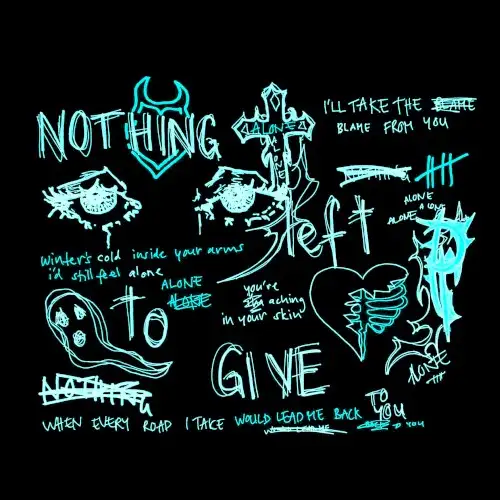 NOTHING
ALONE
I'LL TAKE THE BLAME
BLAME FROM YOU
ALONE
ALONE
ALONE
left
winter's cold inside your arms
i'd still feel alone
ALONE
to
you're
aching
in your skin
GIVE
ALONE
NOTHING
WHEN EVERY ROAD I TAKE WOULD LEAD ME BACK
TO
YOU
WOULD LEAD ME
TO YOU